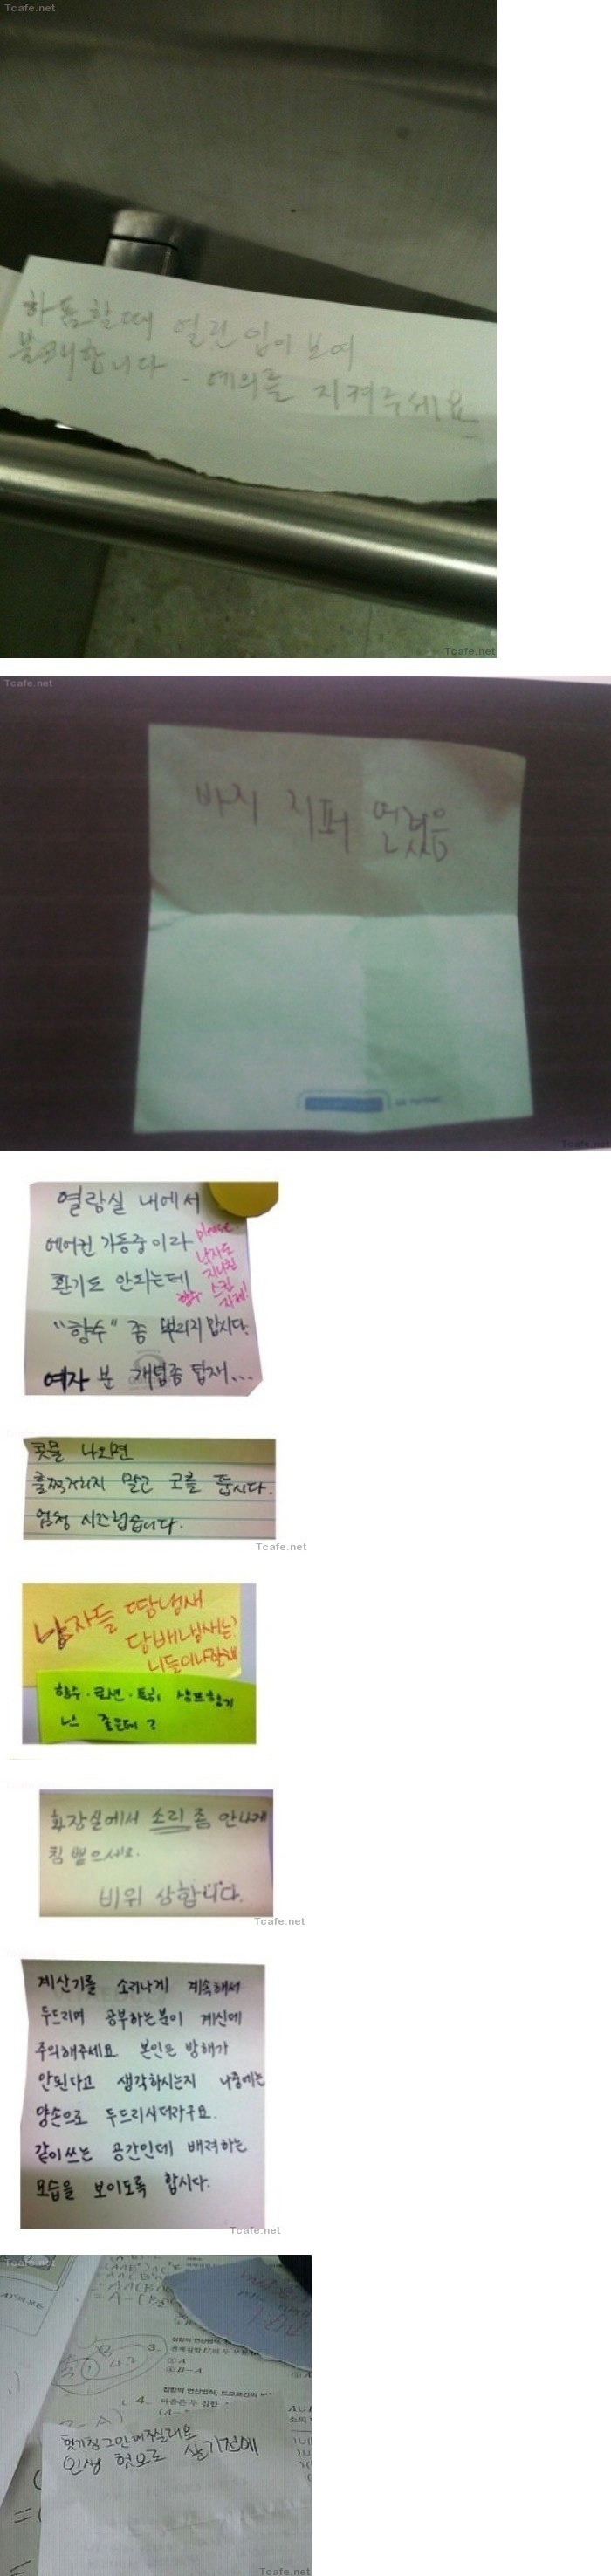 Tcafe.net
하품할때 열린 입이 보여
불쾌합니다. 예의를 지켜주세요
Tcafe.net
Tcafe.net
바지 지퍼 열렸음
Tcafe.net
열람실 내에서
에어컨 가동중이라
환기도 안되는데
"향수" 좀 뿌리지 맙시다.
여자 분 개념좀 탑재...
please
남자도
지나친
향수 스킨
자제!
콧물 나오면
훌쩍거리지 말고 코를 풉시다.
엄청 시끄럽습니다.
Tcafe.net
남자들 땀냄새
담배냄새는!
니들이나 잘해
향수·로션·특히 샴프향기
난 좋은데?
화장실에서 소리 좀 안나게
침 뱉으세요.
비위 상합니다.
Tcafe.net
계산기를 소리나게 계속해서
두드리며 공부하는분이 계신데
주의해주세요 본인은 방해가
안된다고 생각하시는지 나중에는
양손으로 두드리시더라구요.
같이쓰는 공간인데 배려하는
모습을 보이도록 합시다.
Tcafe.net
Tcafe.net
3.
①A
③B-A
4. 다음은 두 집합
헛기침 그만해주실래요
인생 헛으로 살기전에
Tcafe.net